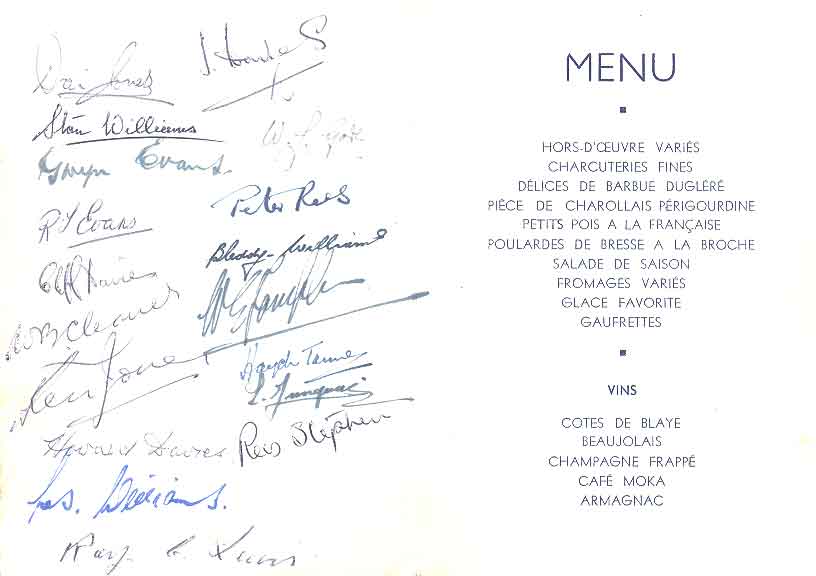 Dai Jones
Stan Williams
Gwyn Evans.
Peter Rees
Evans
Bleddyn Williams
Cliff Davies
W B Cleaver
Ken Jones
Haydn Tanner
Howard Davies
Rees Stephen
Les. Williams.
MENU
HORS-D'ŒUVRE VARIÉS
CHARCUTERIES FINES
DÉLICES DE BARBUE DUGLÉRÉ
PIÈCE DE CHAROLLAIS PÉRIGOURDINE
PETITS POIS A LA FRANÇAISE
POULARDES DE BRESSE A LA BROCHE
SALADE DE SAISON
FROMAGES VARIÉS
GLACE FAVORITE
GAUFRETTES
VINS
COTES DE BLAYE
BEAUJOLAIS
CHAMPAGNE FRAPPÉ
CAFÉ MOKA
ARMAGNAC